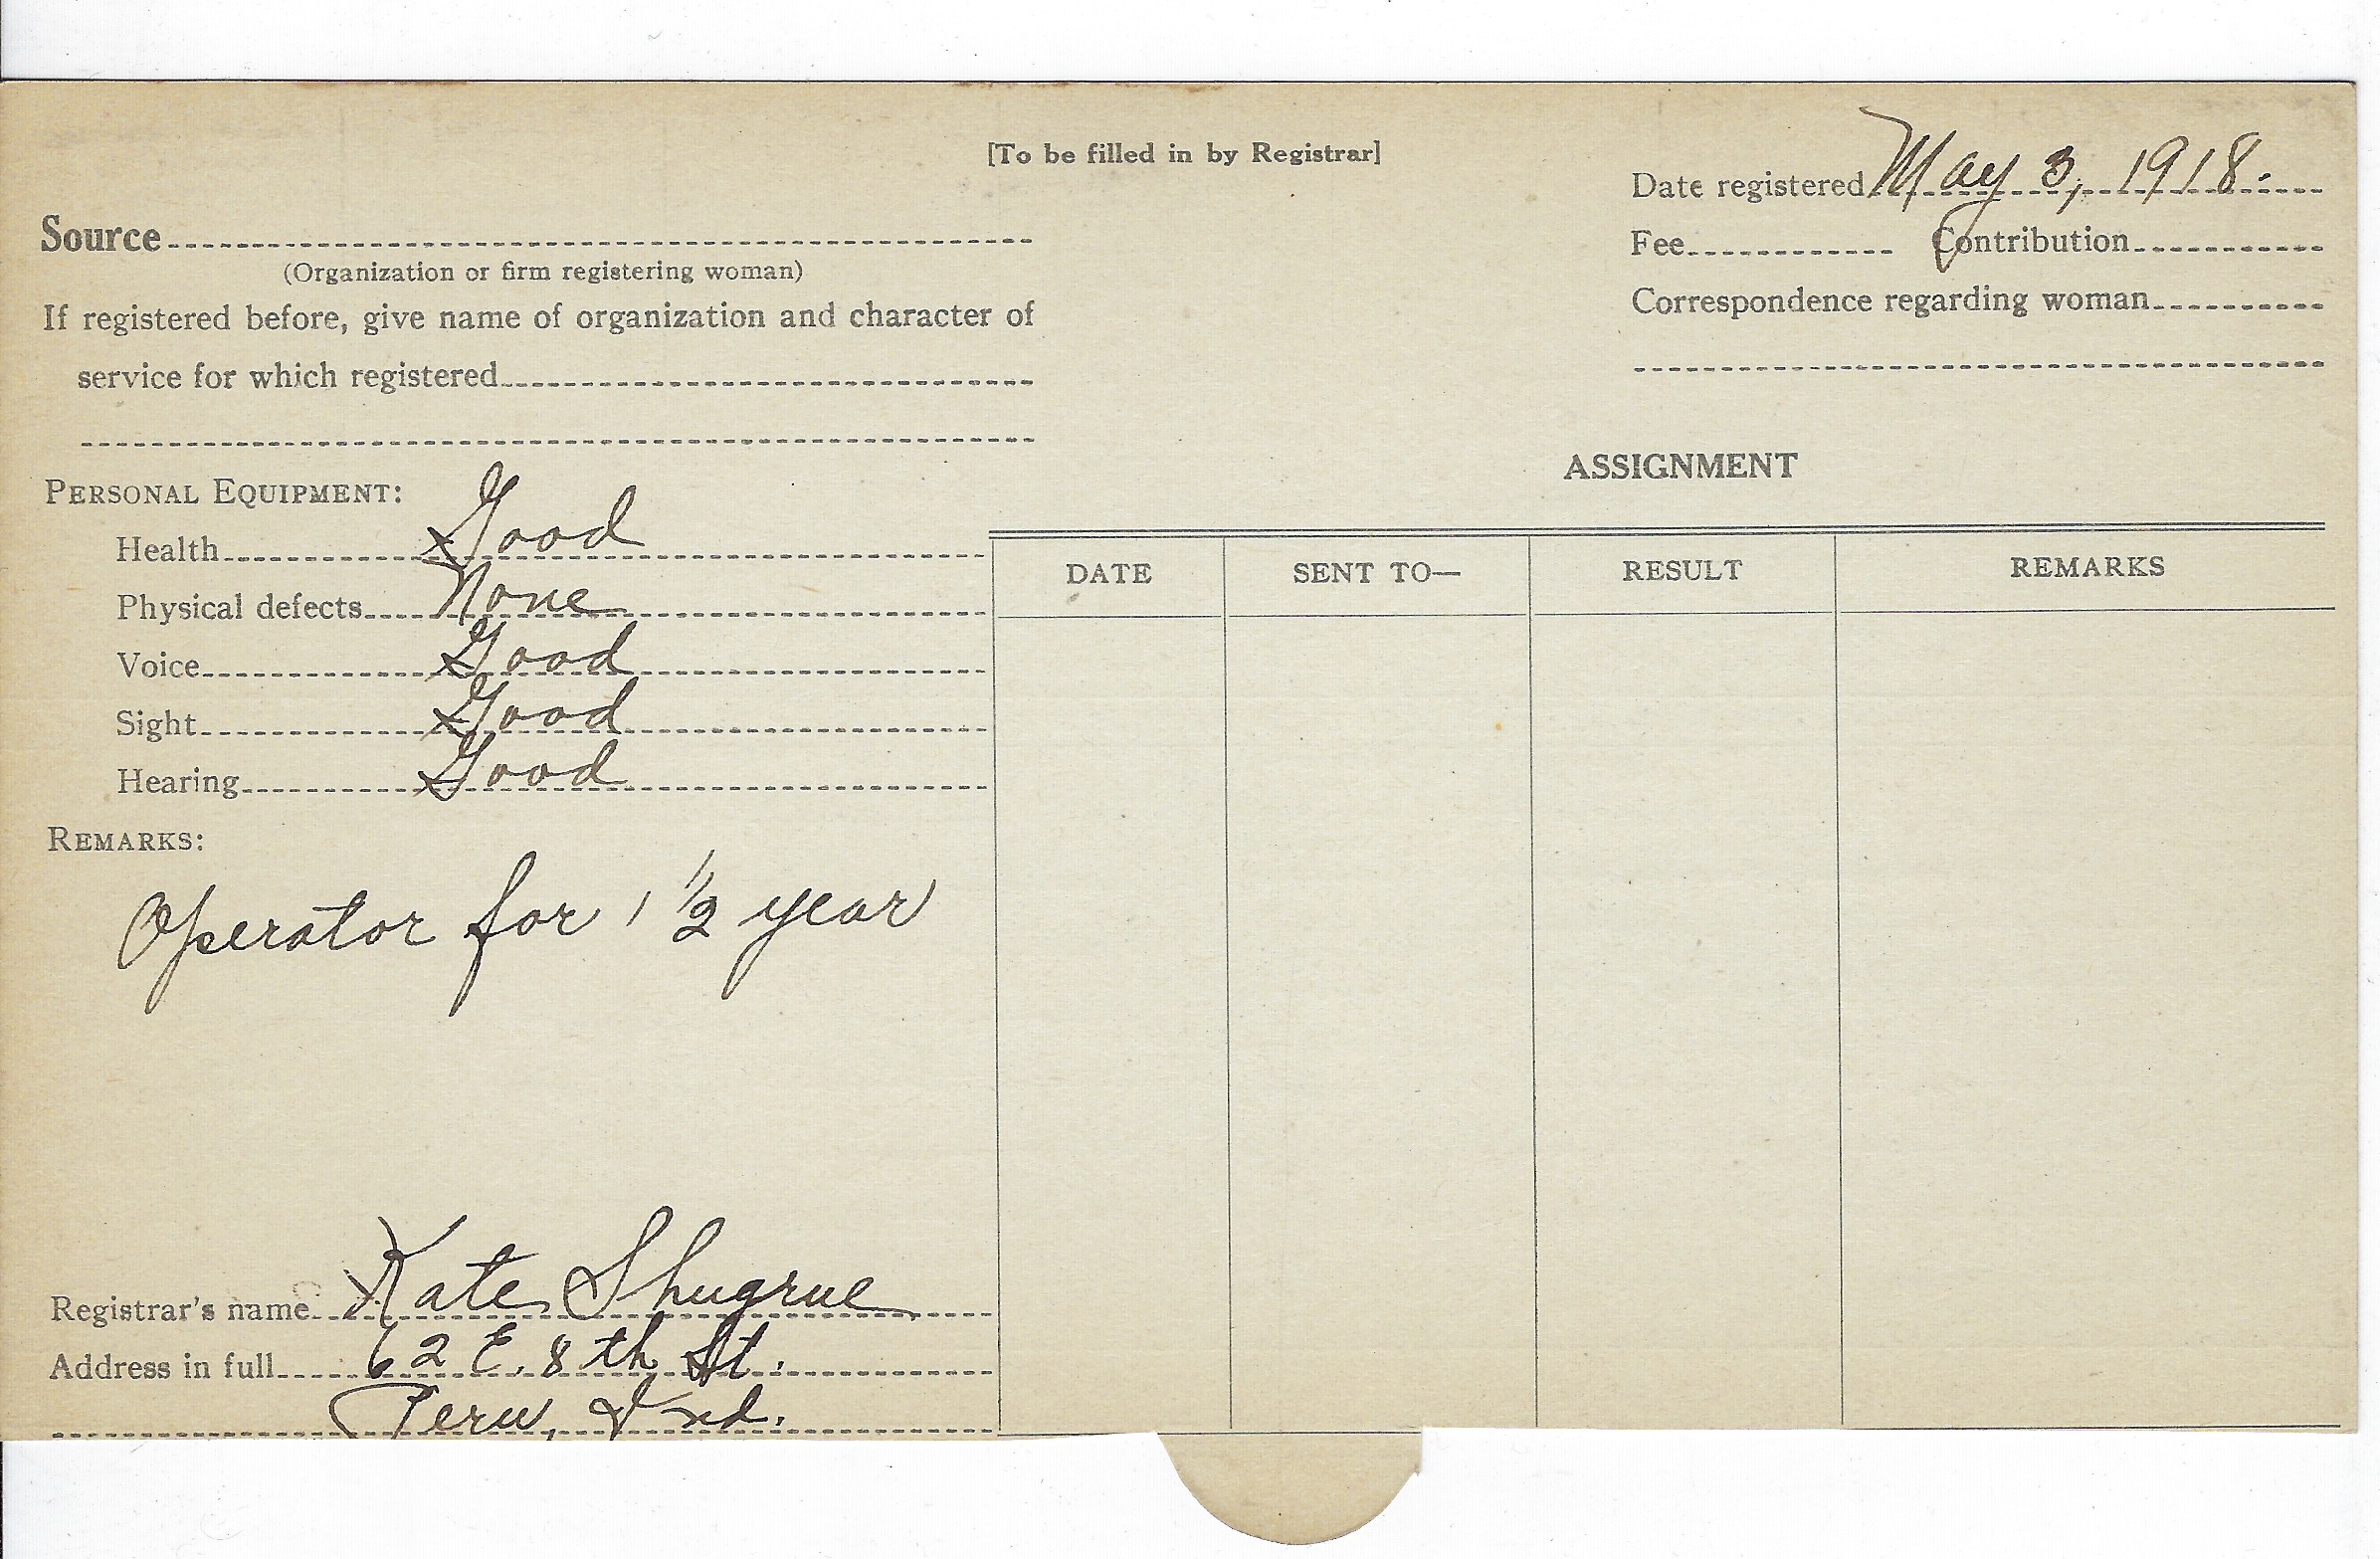 [To be filled in by Registrar]
Date registered May 3, 1918.
Source
(Organization or firm registering woman)
Fee Contribution
If registered before, give name of organization and character of
service for which registered
Correspondence regarding woman
ASSIGNMENT
PERSONAL EQUIPMENT:
Health Good
Physical defects None
Voice Good
Sight Good
Hearing Good
DATE SENT TO— RESULT REMARKS
REMARKS:
Operator for 1 1/2 year
Registrar's name Kate Shugrue
Address in full 62 E. 8th St.
Peru, Ind.